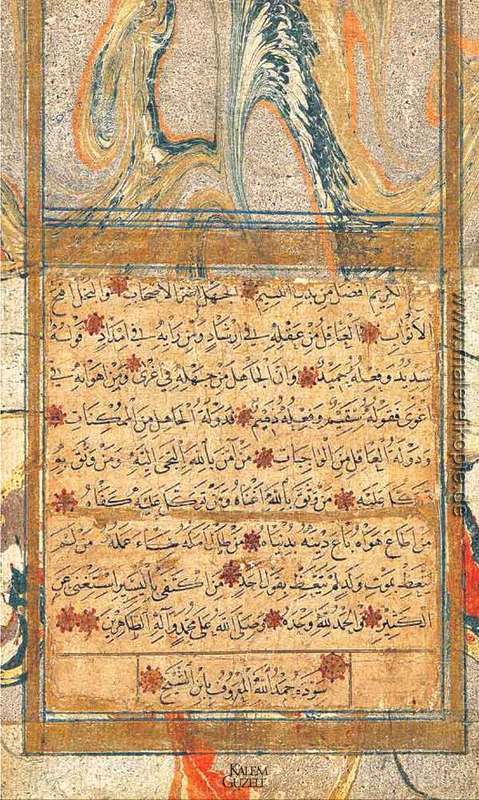 الكريم افضل من بذل النسيم الجهل اضر الاصحاب والبخل اقبح
الاثواب العاقل من عقله في ارشاد ومن رايه في امداد فوله
سديد وفعله حميد وان الجاهل من جهله في غرى ومن اهوائه في
اغوى فقوله سقيم وفعله ذميم فدولة الجاهل من الممكنات
ودولة العاقل من الواجبات من آمن بالله التجى اليه ومن وثق به
توكل عليه من وثق بالله اغناه ومن توكل عليه كفاه
من اطاع هواه باع دينه بدنياه من طال امله ساء عمله من لم
يتعظ بموت ولد لم يتعظ بقول احد من اكتفى باليسير استغنى عن
الكثير والحمد لله وحده وصلى الله على محمد وآله الطاهرين
سوده حمد الله المعروف بابن الشيخ
KALEM
GÜZELİ
www.malereikopie.de